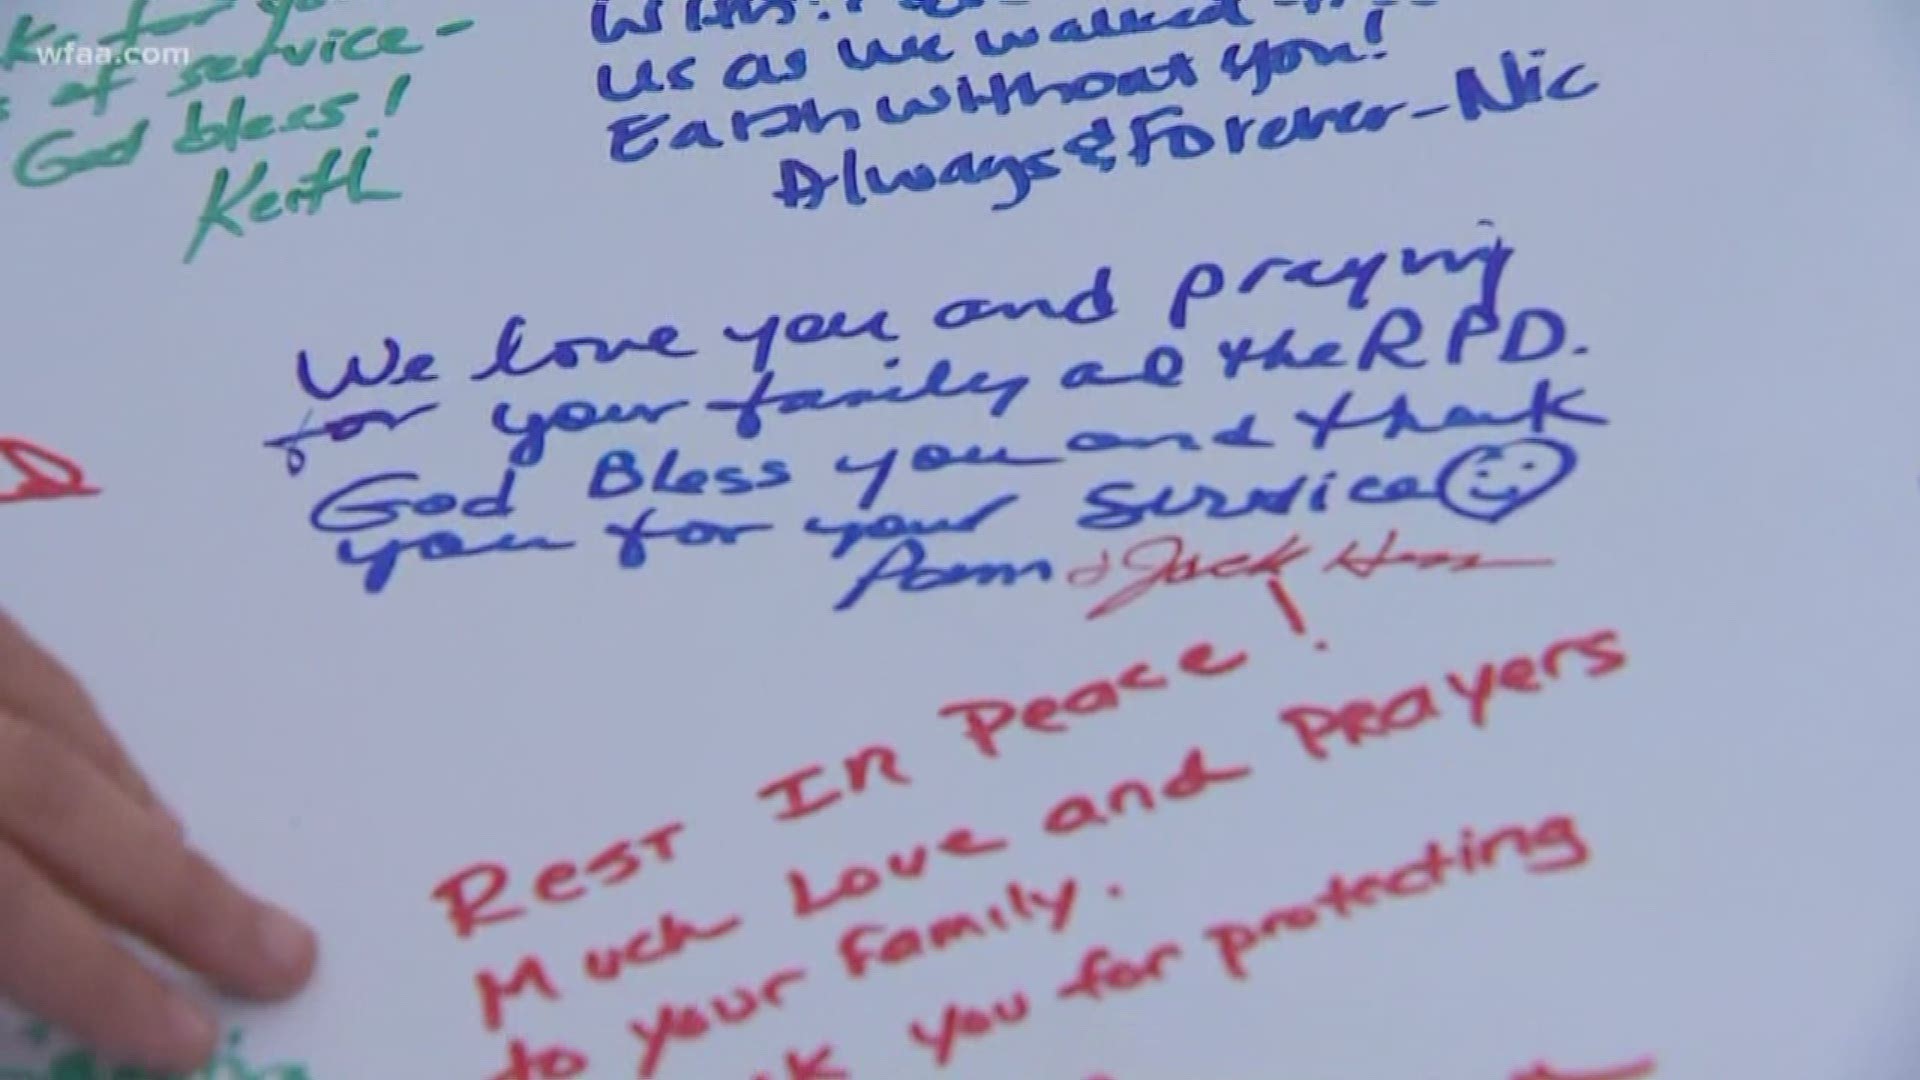 wfaa.com
for
of service -
God bless!
Keith
us as we walked
Earth without you!
Always & Forever - Nic
We love you and praying
for your family at the RPD.
God Bless you and thank
you for your service
Pam & Jack
Rest In Peace!
Much Love and Prayers
to your family.
you for protecting